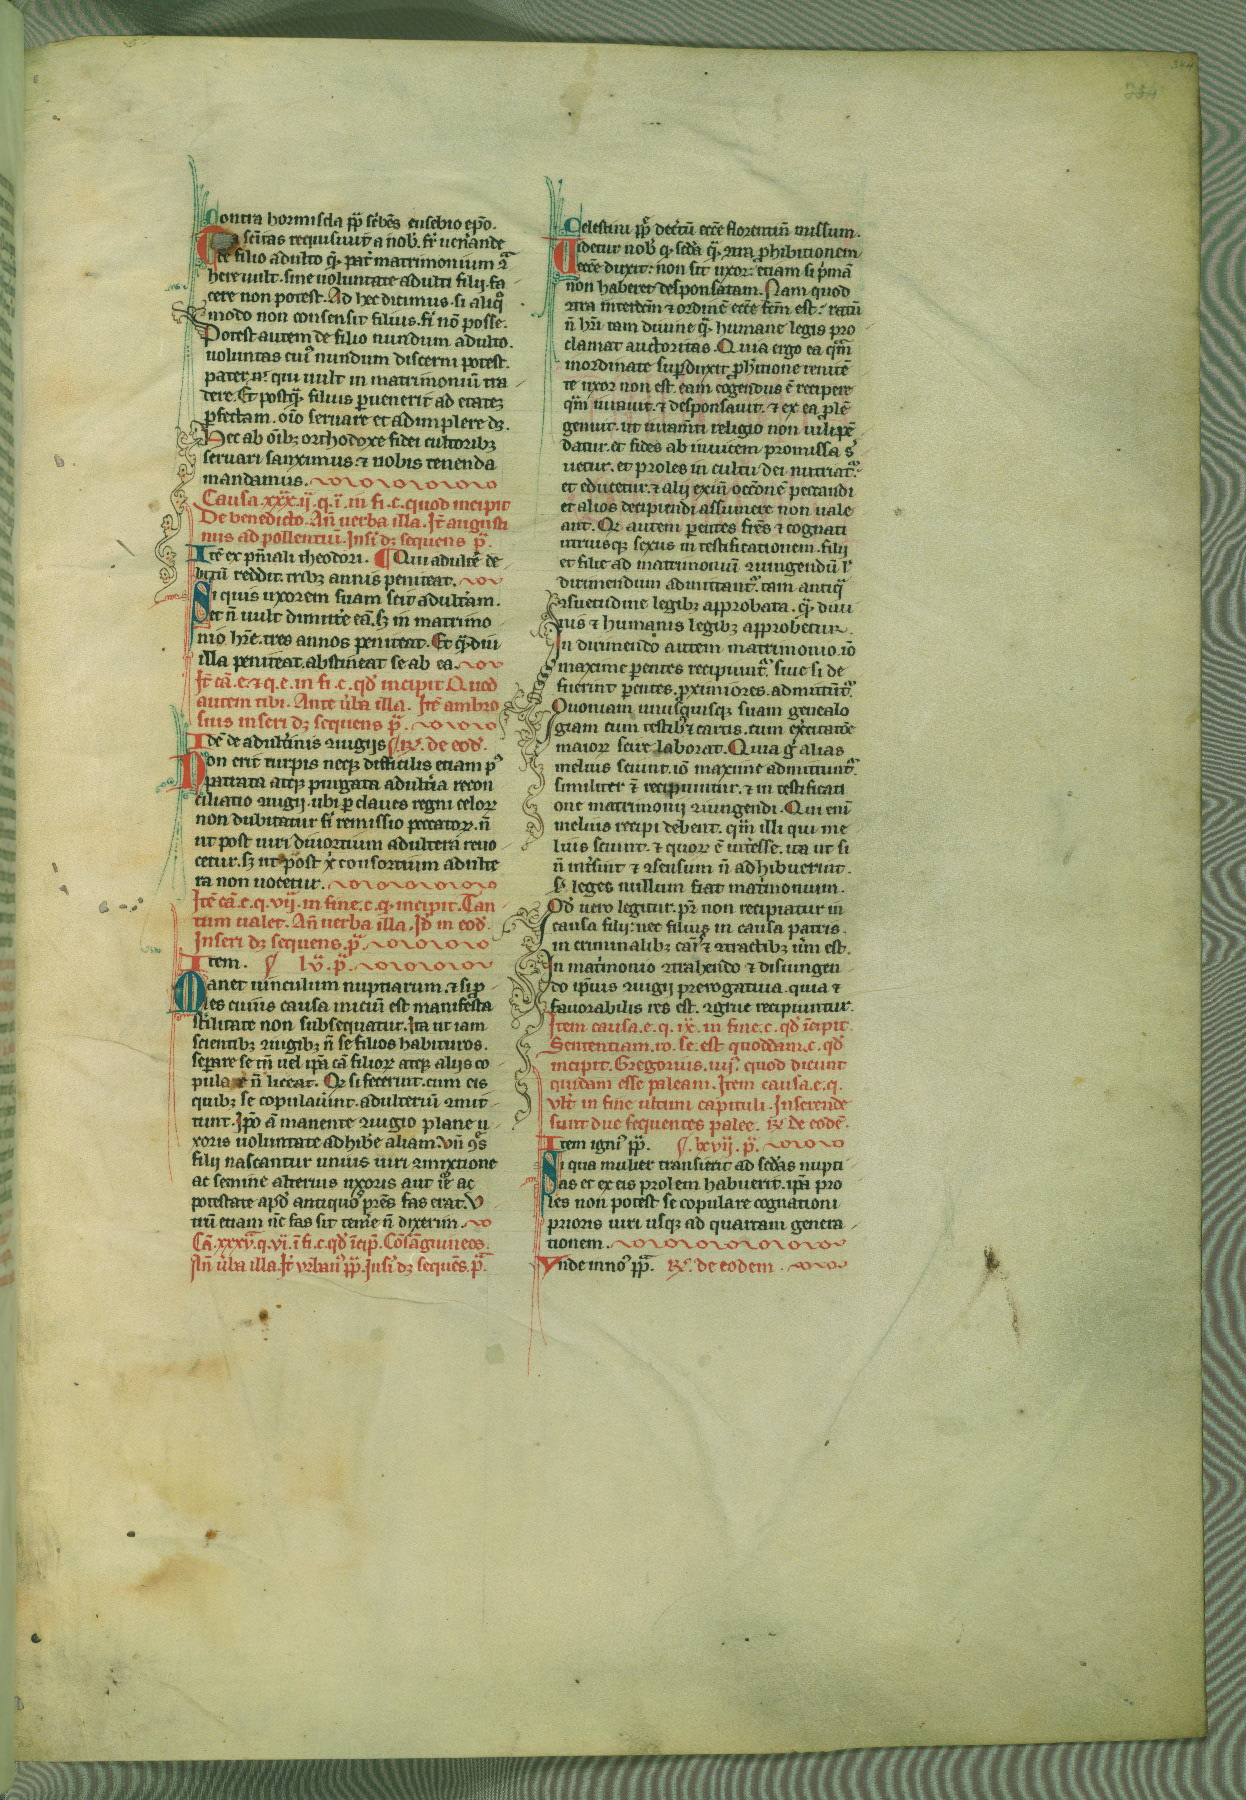 344
344
Contra hormisda pp̄ sc̄bēs eusebio ep̄o.
sc̄itas requisiuit a nob̄. fr̄ uen̄ande
de filio adulto q̄. pat̄ matrimonium ꝯtͣ
here uult. sine uoluntate adulti filij. fa
cere non potest. Ad hec dicimus. si aliqͦ
modo non consensit filius. fi nō posse.
Potest autem de filio nundum adulto.
uoluntas cuiꝰ nundum discerni potest.
pater. nͥ. qui uult in matrimoniū tra
dere. Et postqͣ̄ filius ꝑuenerit ad etateꝫ
ꝑfectam. oīo seruare et adimplere dꝫ.
Hec ab oībꝫ orthodoxe fidei cultoribꝫ
seruari sanximus. ⁊ nobis tenenda
mandamus.
Causa. xxx.ij. q. i. in fi. c. quod incipit
De benedicto. An̄ uerba illa. Jt̄ augusti
nus ad pollentiū. Inſi dꝫ sequens p̄.
Itē ex pn̄iali theodori. ¶ Qui adulte de
bitū reddit. tribꝫ annis peniteat.
Si quis uxorem suam scit adult̄am.
et n̄ uult dimitt̄e eā. sꝫ in matrimo
nio hr̄e. tres annos peniteat. Et qͣ̄.diu
illa peniteat. abstineat se ab ea.
Jt̄ cā. e. ⁊ q. e. in fi. c. qd̄ incipit Quod
autem tibi. Ante ūba illa. Jtē ambro
sius inseri dꝫ sequens p̄.
Idē de adult̄inis ꝯiugijs ℟. de eod̄.
Non erit turpis neqꝫ difficilis etiam pꝰ
patrata atqꝫ purgata adultīa recon
ciliatio ꝯiugij. ubi ꝑ claues regni celoꝝ
non dubitatur fi remissio peccatoꝝ. n̄
ut post uiri diuortium adultera reuo
cetur. sꝫ ut post xp̄i consortium adulte
ra non uocetur.
Jtē cā. e. q. vij. in fine. c. q. incipit. Tan
tum ualet. An̄ uerba illa. Jd̄ in eod̄.
Inseri dꝫ sequens. p̄.
Item. lv. p̄.
Manet uinculum nuptiarum. ⁊ si p
les cuius causa iniciū est manifesta
stilitate non subsequatur. Ita ut iam
scientibꝫ ꝯiugibꝫ n̄ se filios habituros.
seꝑare se tn̄ uel ip̄a cā filioꝝ atqꝫ aliis co
pulare n̄ liceat. Qd̄ si fecerint. cum eis
quibꝫ se copulauīnt. adulteriū ꝯmit
tunt. Ip̄o aͧ manente ꝯiugio plane u
xoris uoluntate adhib̄e aliam. vn̄ ꝯ̄s
filij nascantur unius uiri ꝯmixtione
ac semine alterius uxoris aut iᷓe ac
potestate apd̄ antiquoꝰ pr̄es fas erat. V
trū etiam nc̄ fas sit tem̄e n̄ dixerim.
Cā. xxxv. q. vi. ī fi. c. qd̄ īcip̄. Cōsāguineos.
An̄ ūba illa. Jt̄ vrbanꝰ pp̄. Inſi dꝫ sequēs. p̄.
Celestini pp̄ dec̄tū ecc̄e florentiū missum.
Uidetur nob̄ q̄. sc̄da q̄. ꝯtra ꝓhibitionem
ecc̄e duxit. non sit uxor. etiam si pͥmā
non haberet desponsatam. Nam quod
ꝯtra interdc̄m ⁊ ordinē ecc̄e fc̄m est. ratū
n̄ hr̄i tam diuine qͣ̄. humane legis pro
clamat auctoritas. Quia ergo ea qͣ̄m
inordinate suꝑduxit ꝓhitione reniten
te uxor non est. eam cogendus ē recipere
qͣ̄m iurauit. ⁊ desponsauit. ⁊ ex ea ꝓlē
genuit. ut iuramn̄ti religio non uilipē
datur. et fides ab inuicem promissa sͥ
uetur. et proles in cultu dei nutriatͬ.
et educetur. ⁊ alij exin̄ occōnē peccandi
et alios decipiendi assumere non uale
ant. Qd̄ autem ꝑentes fr̄es ⁊ cognati
utriusqꝫ sexus in testificationem. filij
et filie ad matrimoniū ꝯiungendū uͥ
dirimendum admittantͬ. tam antiqͣ
ꝯsuetudine legibꝫ approbata. qͣ̄. diui
nis ⁊ humanis legibꝫ approbetur.
In dirimendo autem matrimonio. iō
maxime ꝑentes recipiuntͬ. siue si de
fuerint ꝑentes. ꝓximiores. admittūtͬ.
Quoniam unusquisqꝫ suam genealo
giam cum testibꝫ ⁊ cartis. tum ex̄citatōe
maioꝝ scire laborat. Quia gͦ alias
melius sciunt. iō maxime admittuntͬ.
similiter ⁊ recipiuntur. ⁊ in testificati
one matrimonij ꝯiungendi. Qui enī
melius recipi debent. qͣ̄m illi qui me
lius sciunt. ⁊ quoꝝ ē int̄esse. ita ut si
n̄ int̄sint ⁊ ꝯsensum n̄ adhibuerint.
sͥ. leges nullum fiat mat̄imonium.
Qd̄ uero legitur. pr̄ non recipiatur in
causa filij. nec filius in causa patris.
in criminalibꝫ cāis ⁊ ꝯtractibꝫ uīm est.
In mat̄imonio ꝯtrahendo ⁊ disiungen
do ip̄ius ꝯiugij prerogatiua. quia ⁊
fauorabilis res est. ꝯgrue recipiuntur.
Item causa. e. q. ix. in fine. c. qd̄ īcipit.
Sententiam. ro. se. est quoddam. c. qd̄
incipit. Gregorius. uiꝰ. quod dicunt
quidam esse paleam. Item causa. e. q.
vlt̄ in fine ultimi capituli. Inserende
sunt due sequentes palee. ℟ de eodē.
Item igniꝰ pp̄. lxvij. p̄.
Si qua mulier transierit ad sc̄das nupti
as et ex eis prolem habuerit. ip̄a pro
les non potest se copulare cognationi
prioris uiri usqꝫ ad quartam genera
tionem.
Vnde innoꝰ pp̄. ℟. de eodem.